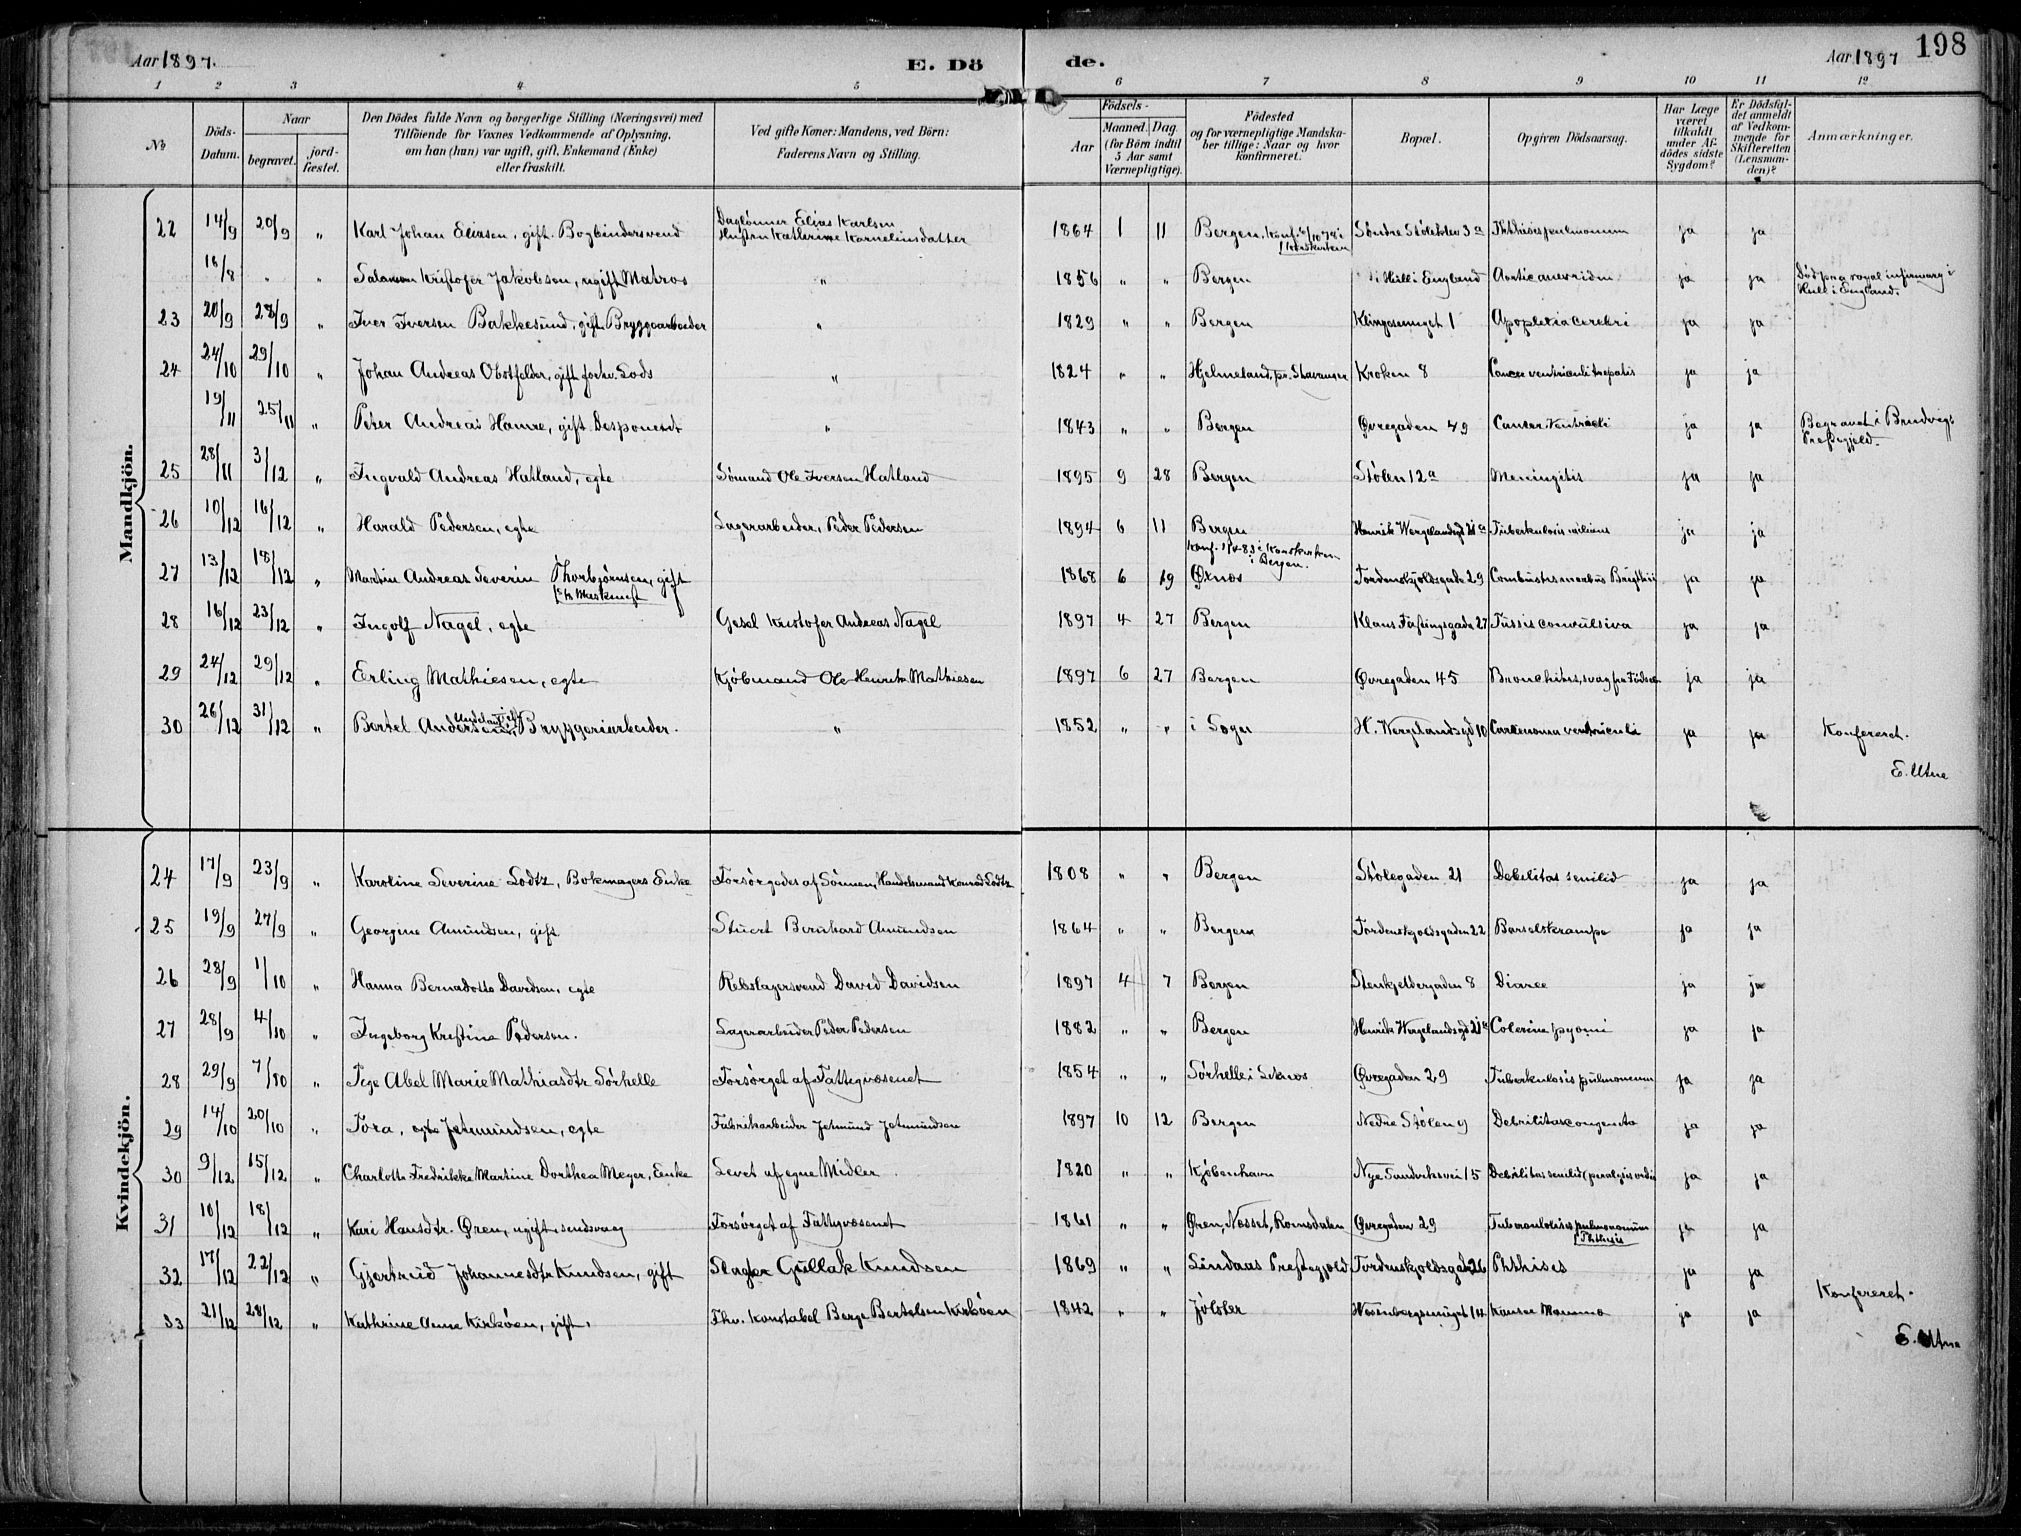 198
Aar 1897. E. Dö de. Aar 1897
1 2 3 4 5 6 7 8 9 10 11 12
№
Döds-Datum.
Naar
begravet. jord-fæstet.
Den Dödes fulde Navn og borgerlige Stilling (Næringsvei) med
Tilföiende for Voxnes Vedkommende af Oplysning,
om han (hun) var ugift, gift, Enkemand (Enke)
eller fraskilt.
Ved gifte Koner: Mandens, ved Börn:
Faderens Navn og Stilling.
Födsels-
Aar
Maaned. Dag.
(for Börn indtil
5 Aar samt
Værnepligtige).
Födested
og for værnepligtige Mandska-
ber tillige: Naar og hvor
konfirmeret.
Bopæl.
Opgiven Dödsaarsag.
Har Læge
været
tilkaldt
under Af-
dödes sidste
Sygdom?
Er Dödsfal-
det anmeldt
af Vedkom-
mende for
Skifteretten
(Lensman-
den)?
Anmærkninger.
Mandkjön.
22 14/9 20/9 " Karl Johan Eliasen, gift. Bogbindersvend Daglønner Elias Karlsen Hustru Katherine Kornelinsdatter 1864 1 11 Bergen, Konf. i Korskirken Søndre Støletolen 3a Phthisis pulmonum ja ja
18/8 " " Salamon Kristofer Jakobsen, ugift Matros " 1856 " " Bergen i Hull i England Aortic aneurism ja ja Død paa royal infirmary i Hull i England.
23 20/9 28/9 " Iver Iversen Bakkesund, gift Bryggearbeider " 1829 " " Bergen Klingesmuget 1 Apoplexia cerebri ja ja
24 24/10 29/10 " Johan Andreas Obstfelder, gift forhv. Lods " 1824 " " Hjelmeland, pr. Stavanger Kroken 8 Cancer ventriculi & hepatis ja ja
19/11 25/11 " Peter Andreas Hamre, gift Desponent " 1843 " " Bergen Øvregaden 49 Cancer Ventricli ja ja Begravet i Bruvigs Prestegjeld.
25 28/11 3/12 " Ingvald Andreas Hatland, egte Sømand Ole Iversen Hatland 1895 9 28 Bergen Stølen 12a Meningitis ja ja
26 10/12 16/12 " Harald Pedersen, egte Lagerarbeider, Peder Pedersen 1894 6 11 Bergen Henrik Wergelandsgd 21a Tuberkulosis miliaris ja ja
27 13/12 18/12 " Martin Andreas Severin Thorbjørnsen, gift Maskinist 1868 6 19 Konf. 1/4-83 i Korskirken i Bergen. Øxnæs Tordenskjoldsgade 29 Combustio morbus Brigthii ja ja
28 16/12 23/12 " Ingolf Nagel, egte Gesel Kristofer Andreas Nagel 1897 4 27 Bergen Klaus Fastingsgade 27 Tussis convulsiva ja ja
29 24/12 29/12 " Erling Mathiesen, egte Kjøbmand Ole Henrik Mathiesen 1897 6 27 Bergen Øvregaden 45 Bronchitis, svag fra Fødsel ja ja
30 26/12 31/12 " Bertel Andersen Bryggeriarbeider. " 1852 " " i Sogn H. Wergelandsgd 10 Carcenoma ventriculi ja ja Konfereret.
E. Utne
Kvindekjön.
24 17/9 23/9 " Karoline Severine Lodtz, Bokmagers Enke Forsørgedes af Sønnen, Handelsmand Konrad Lodtz 1808 " " Bergen Stølegaden 21 Debilitas senilis ja ja
25 19/9 27/9 " Georgine Amundsen, gift Stuert Bernhard Amundsen 1864 " " Bergen Tordenskjoldsgaden 22 Barselskrampe ja ja
26 28/9 1/10 " Hanna Bernadotte Davidsen, egte Rebslagersvend David Davidsen 1897 4 7 Bergen Stenkjeldergaden 8 Diaree ja ja
27 28/9 4/10 " Ingeborg Kristine Pedersen. Lagerarbeider Peder Pedersen 1882 " " Bergen Henrik Wergelandsgd 21a Colerina pyœmi ja ja
28 29/9 7/10 " Tige Abel Marie Mathiasdtr Sørhelle Forsørget af Fattigvæsenet 1854 " " Sørhelle i Øvregaden 29 Tuberkulosis pulmonum ja ja
29 14/10 20/10 " Tora, egte Jetmundsen, egte Fabrikarbeider Jetmund Jetmundsen 1897 10 12 Bergen Nedre Stølen 9 Debilitas congenita ja ja
30 9/12 15/12 " Charlotte Fredrikke Martine Dorthea Meyer, Enke Levet af egne Midler 1820 " " Kjøbenhavn Nye Sandviksvei 15 Debilitas senilis ja ja
31 10/12 18/12 " Kari Hansdtr. Øren, ugift sindsvag Forsørget af Fattigvæsenet 1861 " " Øren, Nesset, Romsdalen Øvregaden 29 Tuberculosis pulmonum Phthisis ja ja
32 17/12 22/12 " Gjertrud Johannesdtr Knudsen, gift Slagter Gullak Knudsen 1869 " " Lindaas Prestegjeld Tordenskjoldsgade 26 Phthisis ja ja
33 21/12 28/12 " Kathrine Anne Kirkøen, gift. Fhv. Konstabel Berge Bertelsen Kirkøen 1842 " " Jølster Wesenbergsmuget 14 Kanser Mamma ja ja Konfereret.
E. Utne